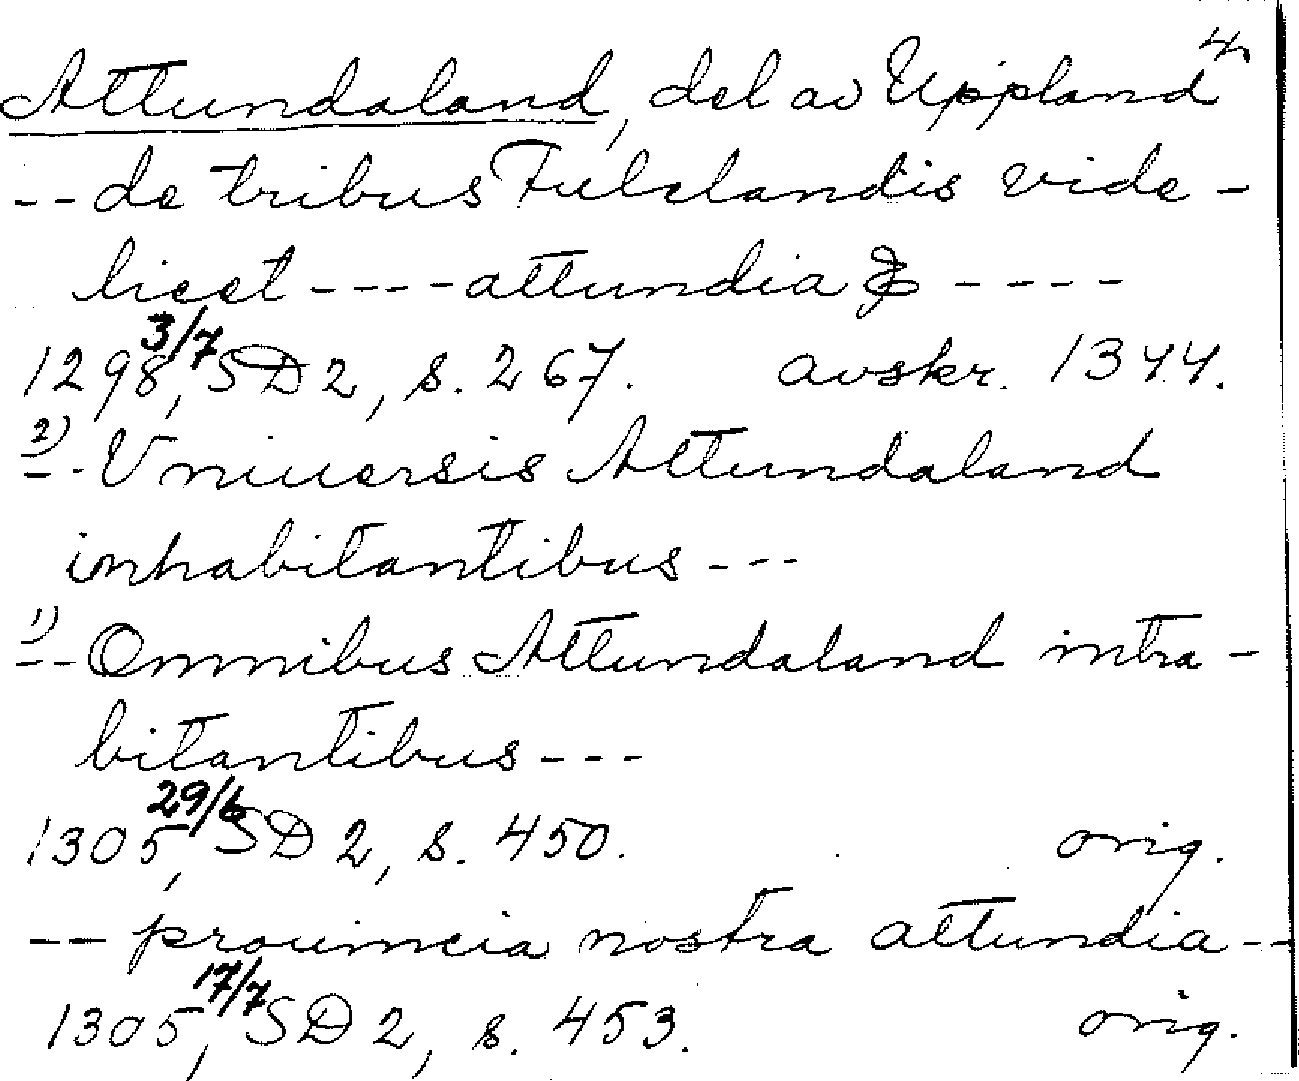 4.
Attundaland, del av Uppland
-- de tribus Fulclandis vide-
licet ---- attundia & ----
1298 3/7, SD 2, s. 267. avskr. 1344.
2) -- Vniuersis Attundaland
inhabitantibus ---
1) -- Omnibus Attundaland intra-
bitantibus ---
1305 29/6, SD 2, s. 450. orig.
-- prouincia nostra attundia --
1305 17/7, SD 2, s. 453. orig.